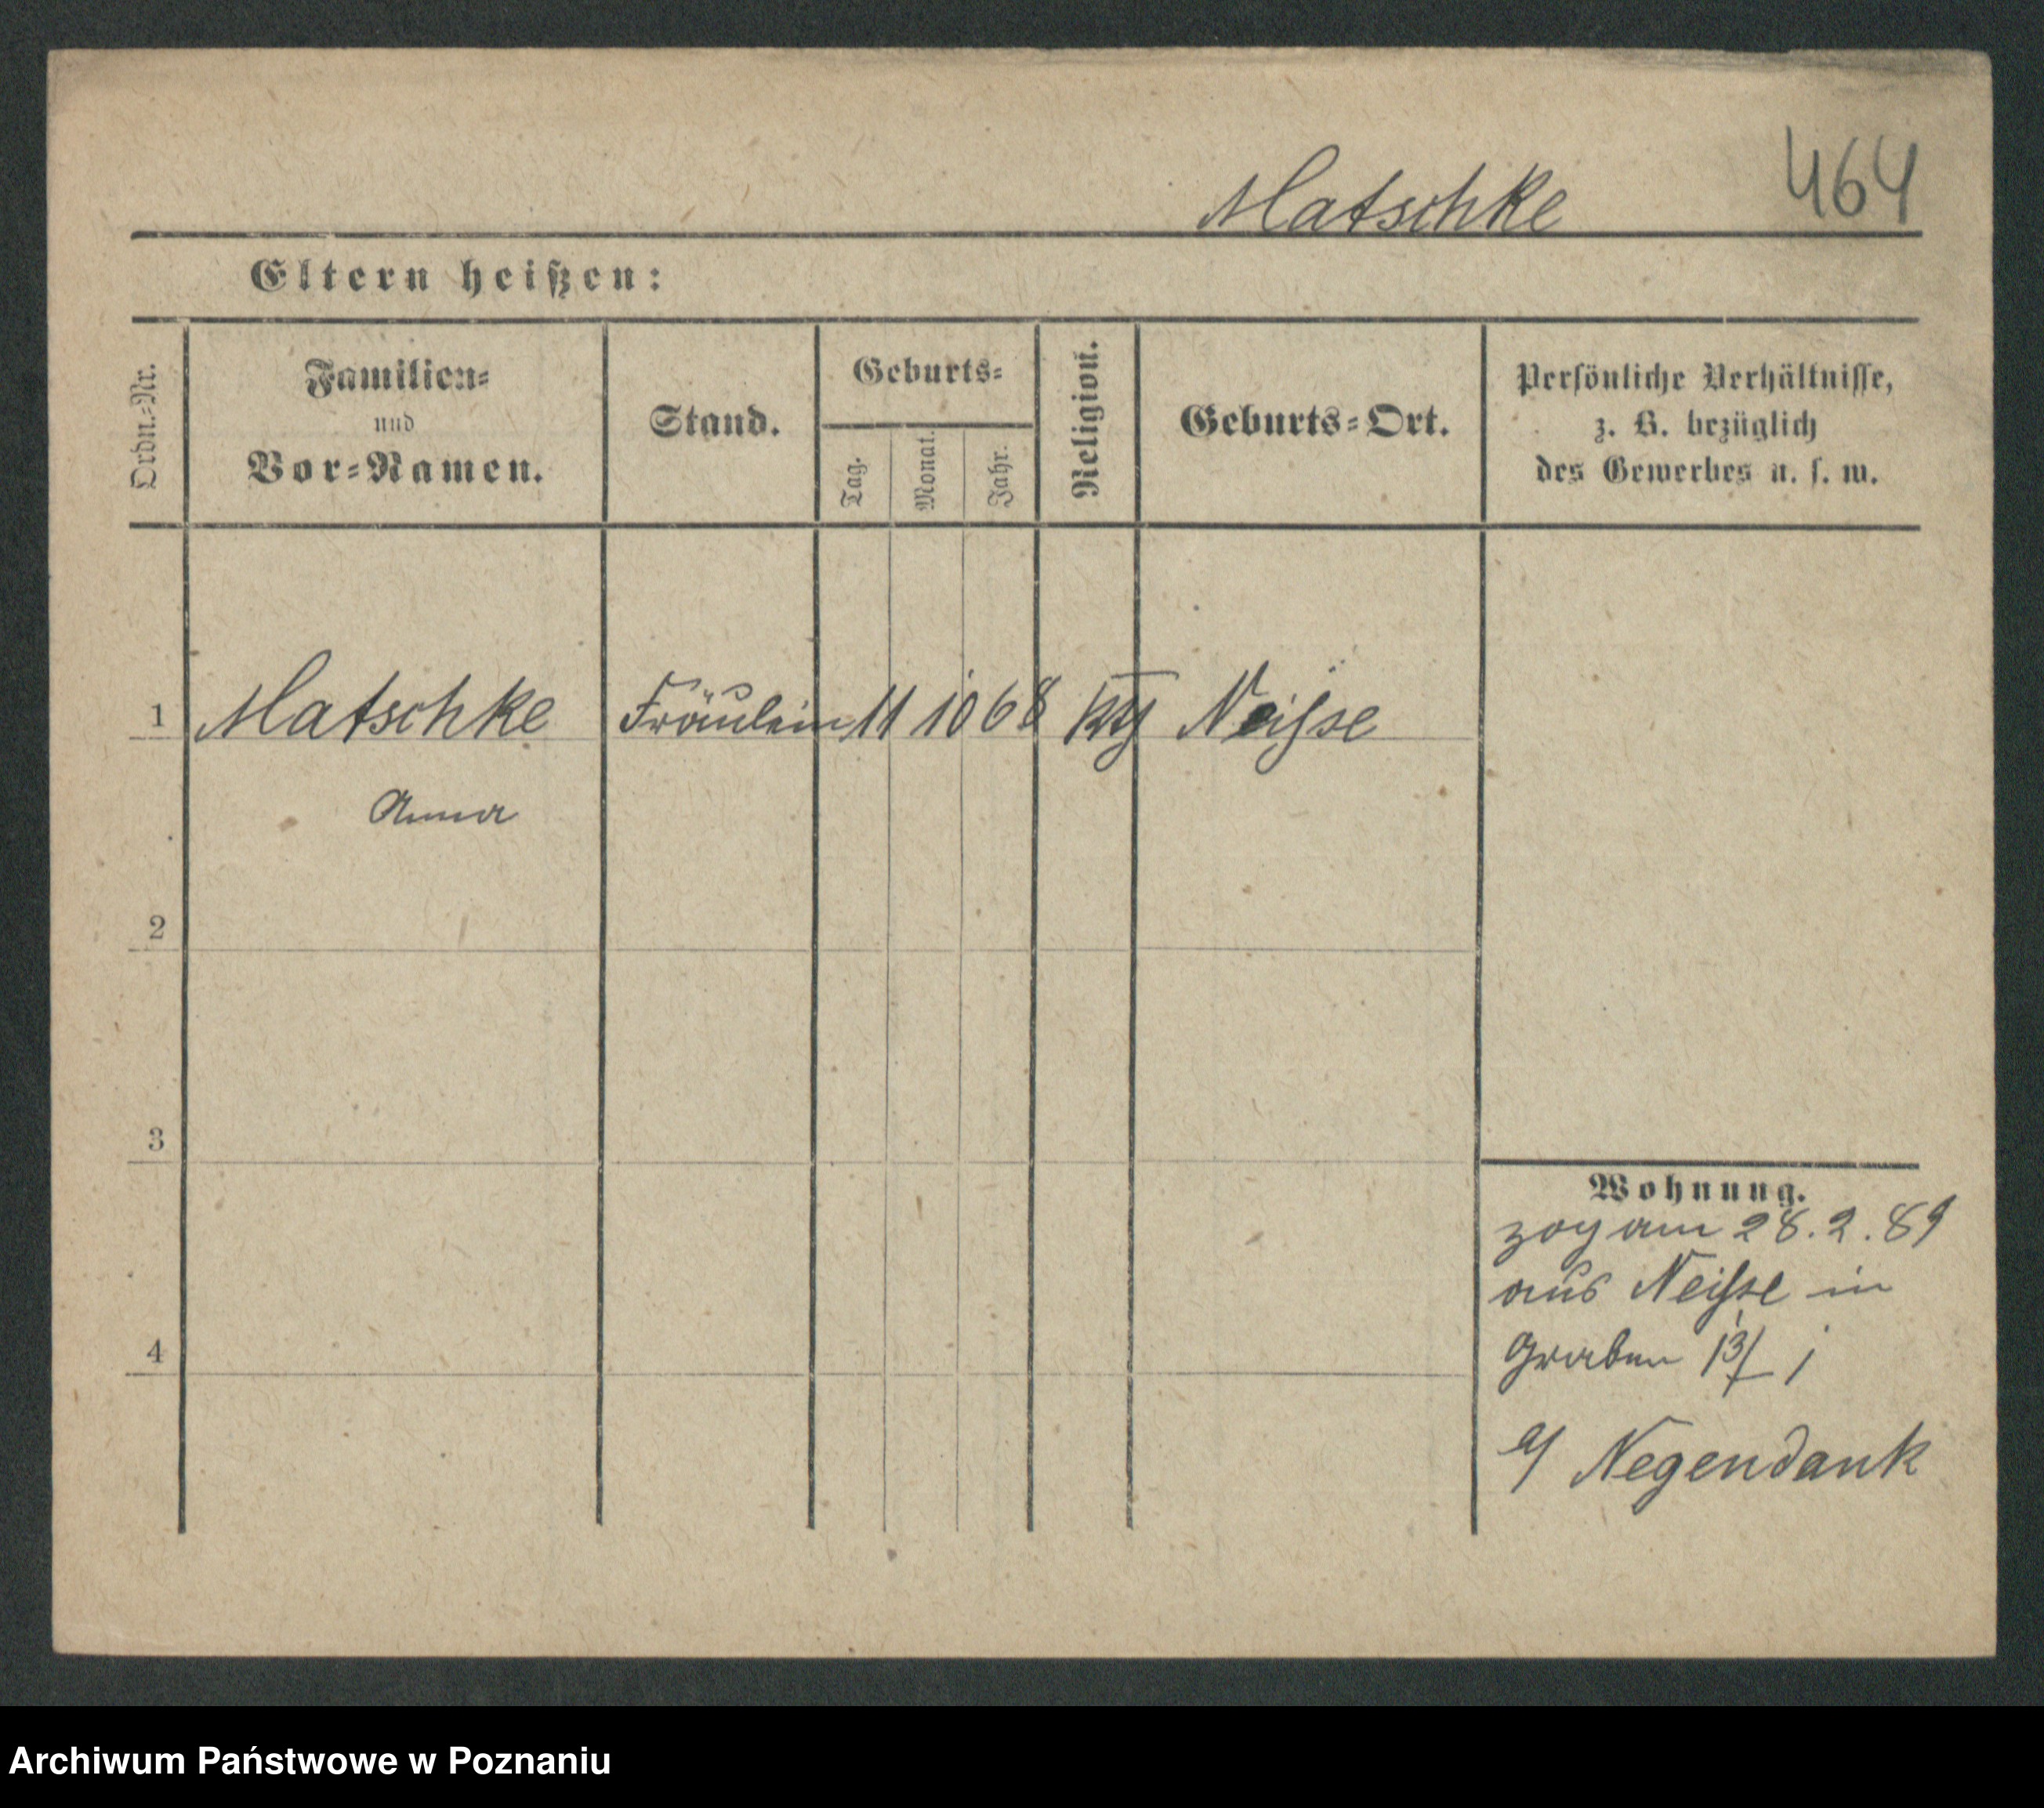 Matschke 464
Eltern heißen:
Ordn.-Nr.
Familien-
und
Vor-Namen.
Stand.
Geburts-
Tag.
Monat.
Jahr.
Religion.
Geburts-Ort.
Persönliche Verhältnisse,
z. B. bezüglich
des Gewerbes u. s. w.
1 Matschke Fräulein 11 10 68 Neiſse
Anna
2
3
4
Wohnung.
zog am 28.2.89
aus Neiſse in
Graben 13/
Negendank
Archiwum Państwowe w Poznaniu